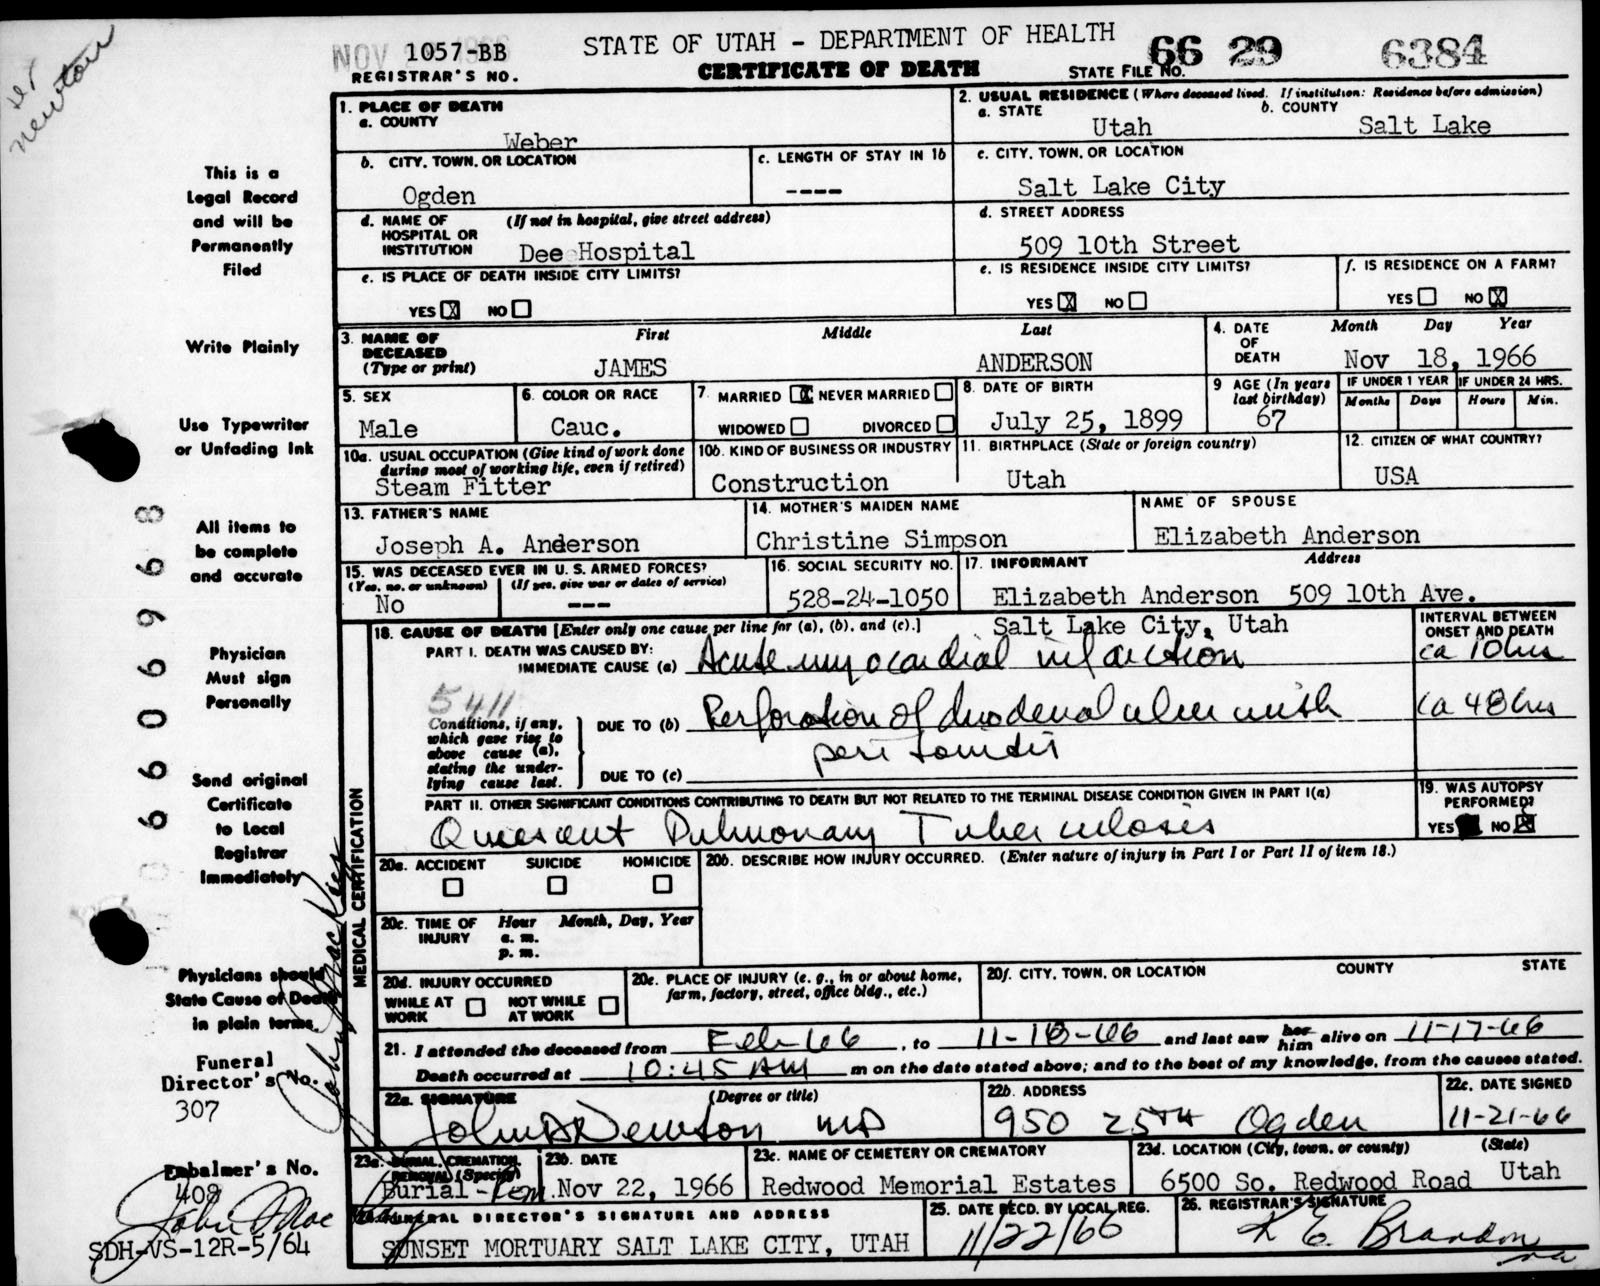 Newton
NOV
1057-BB
REGISTRAR'S NO.
STATE OF UTAH - DEPARTMENT OF HEALTH
CERTIFICATE OF DEATH
STATE FILE NO. 66 29 6384
This is a
Legal Record
and will be
Permanently
Filed
Write Plainly
Use Typewriter
or Unfading Ink
All items to
be complete
and accurate
Physician
Must sign
Personally
Send original
Certificate
to Local
Registrar
Immediately
Physicians should
State Cause of Death
in plain terms.
Funeral
Director's No.
307
Embalmer's No.
408
John Mac
SDH-VS-12R-5/64
1. PLACE OF DEATH
a. COUNTY
Weber
b. CITY, TOWN, OR LOCATION
Ogden
c. LENGTH OF STAY IN 1b
----
d. NAME OF HOSPITAL OR INSTITUTION (If not in hospital, give street address)
Dee Hospital
e. IS PLACE OF DEATH INSIDE CITY LIMITS?
YES X NO
2. USUAL RESIDENCE (Where deceased lived. If institution: Residence before admission)
a. STATE
Utah
b. COUNTY
Salt Lake
c. CITY, TOWN, OR LOCATION
Salt Lake City
d. STREET ADDRESS
509 10th Street
e. IS RESIDENCE INSIDE CITY LIMITS?
YES X NO
f. IS RESIDENCE ON A FARM?
YES NO X
3. NAME OF DECEASED (Type or print)
First Middle Last
JAMES ANDERSON
4. DATE OF DEATH
Month Day Year
Nov 18, 1966
5. SEX
Male
6. COLOR OR RACE
Cauc.
7. MARRIED X NEVER MARRIED
WIDOWED DIVORCED
8. DATE OF BIRTH
July 25, 1899
9 AGE (In years last birthday)
67
IF UNDER 1 YEAR
Months Days
IF UNDER 24 HRS.
Hours Min.
10a. USUAL OCCUPATION (Give kind of work done during most of working life, even if retired)
Steam Fitter
10b. KIND OF BUSINESS OR INDUSTRY
Construction
11. BIRTHPLACE (State or foreign country)
Utah
12. CITIZEN OF WHAT COUNTRY?
USA
13. FATHER'S NAME
Joseph A. Anderson
14. MOTHER'S MAIDEN NAME
Christine Simpson
NAME OF SPOUSE
Elizabeth Anderson
15. WAS DECEASED EVER IN U.S. ARMED FORCES?
(Yes, no, or unknown) (If yes, give war or dates of service)
No ---
16. SOCIAL SECURITY NO.
528-24-1050
17. INFORMANT Address
Elizabeth Anderson 509 10th Ave.
Salt Lake City, Utah
MEDICAL CERTIFICATION
18. CAUSE OF DEATH [Enter only one cause per line for (a), (b), and (c).]
PART I. DEATH WAS CAUSED BY:
IMMEDIATE CAUSE (a) Acute myocardial infarction
INTERVAL BETWEEN ONSET AND DEATH
ca 10 hrs
5411
Conditions, if any, which gave rise to above cause (a), stating the underlying cause last.
DUE TO (b) Perforation of duodenal ulcer with
peritonitis
ca 48 hrs
DUE TO (c)
PART II. OTHER SIGNIFICANT CONDITIONS CONTRIBUTING TO DEATH BUT NOT RELATED TO THE TERMINAL DISEASE CONDITION GIVEN IN PART I(a)
Quiescent Pulmonary Tuberculosis
19. WAS AUTOPSY PERFORMED?
YES NO X
20a. ACCIDENT SUICIDE HOMICIDE
20b. DESCRIBE HOW INJURY OCCURRED. (Enter nature of injury in Part I or Part II of item 18.)
20c. TIME OF INJURY Hour Month, Day, Year
a. m.
p. m.
20d. INJURY OCCURRED
WHILE AT WORK NOT WHILE AT WORK
20e. PLACE OF INJURY (e. g., in or about home, farm, factory, street, office bldg., etc.)
20f. CITY, TOWN, OR LOCATION COUNTY STATE
21. I attended the deceased from Feb 66, to 11-18-66 and last saw her him alive on 11-17-66
Death occurred at 10:45 AM m on the date stated above; and to the best of my knowledge, from the causes stated.
22a. SIGNATURE (Degree or title)
John D Newton MD
22b. ADDRESS
950 25TH Ogden
22c. DATE SIGNED
11-21-66
23a. BURIAL, CREMATION, REMOVAL (Specify)
Burial-Rem.
23b. DATE
Nov 22, 1966
23c. NAME OF CEMETERY OR CREMATORY
Redwood Memorial Estates
23d. LOCATION (City, town, or county) (State)
6500 So. Redwood Road Utah
24. FUNERAL DIRECTOR'S SIGNATURE AND ADDRESS
SUNSET MORTUARY SALT LAKE CITY, UTAH
25. DATE RECD. BY LOCAL REG.
11/22/66
26. REGISTRAR'S SIGNATURE
K E. Brandon